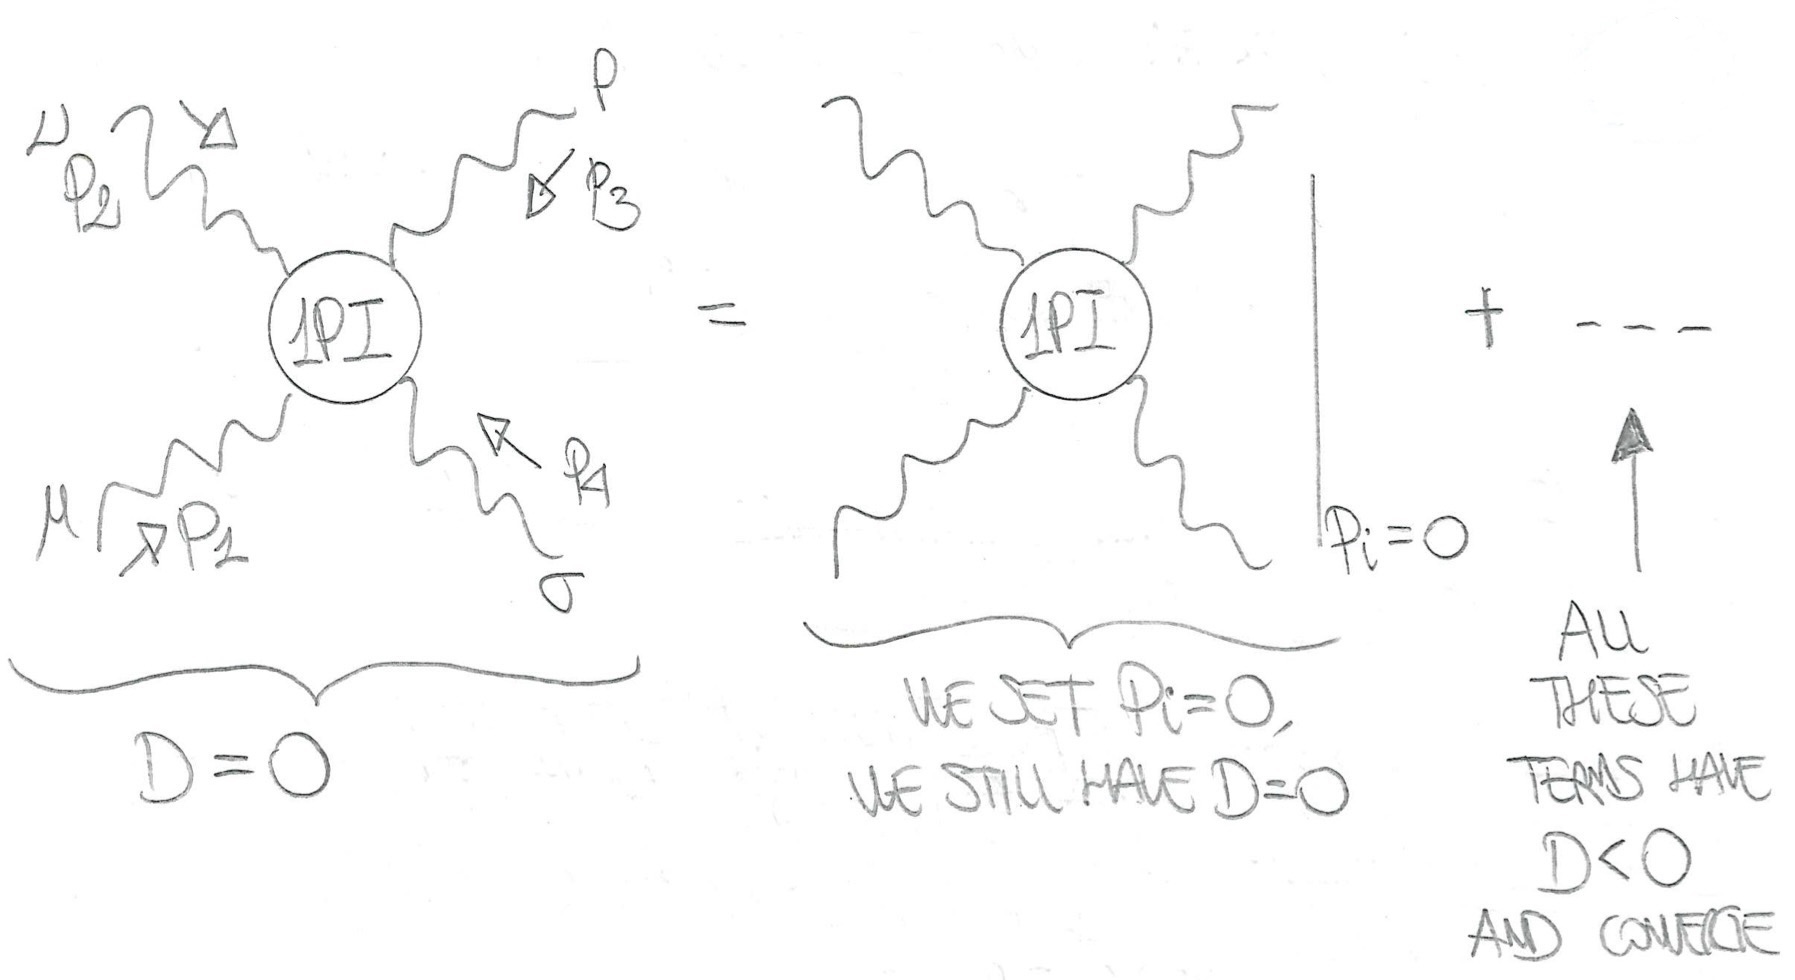 ν
P2
ρ
P3
1PI
μ
P1
P4
σ
D=0
=
1PI
Pi=0
WE SET Pi=0,
WE STILL HAVE D=0
+ ---
ALL
THESE
TERMS HAVE
D<0
AND CONVERGE